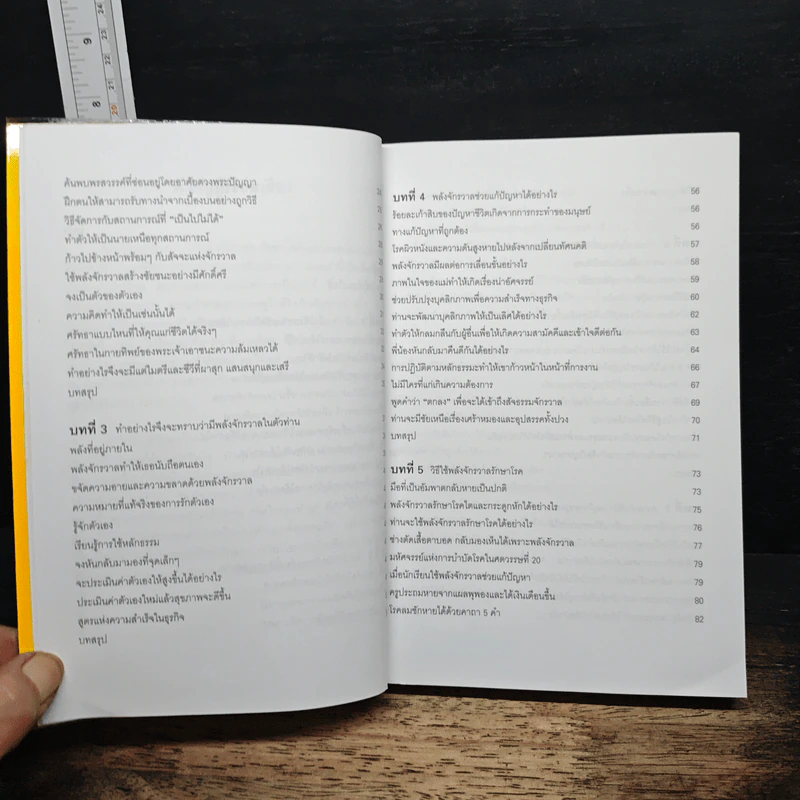 9
8
24
23
22
21
20
ค้นพบพรสวรรค์ที่ซ่อนอยู่โดยอาศัยดวงพระปัญญา
ฝึกตนให้สามารถรับทางนำจากเบื้องบนอย่างถูกวิธี
วิธีจัดการกับสถานการณ์ที่ “เป็นไปไม่ได้”
ทำตัวให้เป็นนายเหนือทุกสถานการณ์
ก้าวไปข้างหน้าพร้อมๆ กับสัจจะแห่งจักรวาล
ใช้พลังจักรวาลสร้างชัยชนะอย่างมีศักดิ์ศรี
จงเป็นตัวของตัวเอง
ความคิดทำให้เป็นเช่นนั้นได้
ศรัทธาแบบไหนที่ให้คุณแก่ชีวิตได้จริงๆ
ศรัทธาในกายทิพย์ของพระเจ้าเอาชนะความล้มเหลวได้
ทำอย่างไรจึงจะมีแต่ไมตรีและชีวีที่ผาสุก แสนสนุกและเสรี
บทสรุป
บทที่ 3 ทำอย่างไรจึงจะทราบว่ามีพลังจักรวาลในตัวท่าน
พลังที่อยู่ภายใน
พลังจักรวาลทำให้เธอนับถือตนเอง
ขจัดความอายและความขลาดด้วยพลังจักรวาล
ความหมายที่แท้จริงของการรักตัวเอง
รู้จักตัวเอง
เรียนรู้การใช้หลักธรรม
จงหันกลับมามองที่จุดเล็กๆ
จะประเมินค่าตัวเองให้สูงขึ้นได้อย่างไร
ประเมินค่าตัวเองใหม่แล้วสุขภาพจะดีขึ้น
สูตรแห่งความสำเร็จในธุรกิจ
บทสรุป
บทที่ 4 พลังจักรวาลช่วยแก้ปัญหาได้อย่างไร 56
ร้อยละเก้าสิบของปัญหาชีวิตเกิดจากการกระทำของมนุษย์ 56
ทางแก้ปัญหาที่ถูกต้อง 56
โรคผิวหนังและความดันสูงหายไปหลังจากเปลี่ยนทัศนคติ 57
พลังจักรวาลมีผลต่อการเลื่อนขั้นอย่างไร 58
ภาพในใจของแม่ทำให้เกิดเรื่องน่าอัศจรรย์ 59
ช่วยปรับปรุงบุคลิกภาพเพื่อความสำเร็จทางธุรกิจ 60
ท่านจะพัฒนาบุคลิกภาพให้เป็นเลิศได้อย่างไร 62
ทำตัวให้กลมกลืนกับผู้อื่นเพื่อให้เกิดความสามัคคีและเข้าใจดีต่อกัน 63
พี่น้องหันกลับมาคืนดีกันได้อย่างไร 64
การปฏิบัติตามหลักธรรมะทำให้เขาก้าวหน้าในหน้าที่การงาน 66
ไม่มีใครที่แก่เกินความต้องการ 67
พูดคำว่า “ตกลง” เพื่อจะได้เข้าถึงสัจธรรมจักรวาล 69
ท่านจะมีชัยเหนือเรื่องเศร้าหมองและอุปสรรคทั้งปวง 70
บทสรุป 71
บทที่ 5 วิธีใช้พลังจักรวาลรักษาโรค 73
มือที่เป็นอัมพาตกลับหายเป็นปกติ 73
พลังจักรวาลรักษาโรคไตและกระดูกหักได้อย่างไร 75
ท่านจะใช้พลังจักรวาลรักษาโรคได้อย่างไร 76
ช่างตัดเสื้อตาบอด กลับมองเห็นได้เพราะพลังจักรวาล 77
มหัศจรรย์แห่งการบำบัดโรคในศตวรรษที่ 20 79
เมื่อนักเรียนใช้พลังจักรวาลช่วยแก้ปัญหา 79
ครูประถมหายจากแผลพุพองและได้เงินเดือนขึ้น 80
โรคลมชักหายได้ด้วยคาถา 5 คำ 82